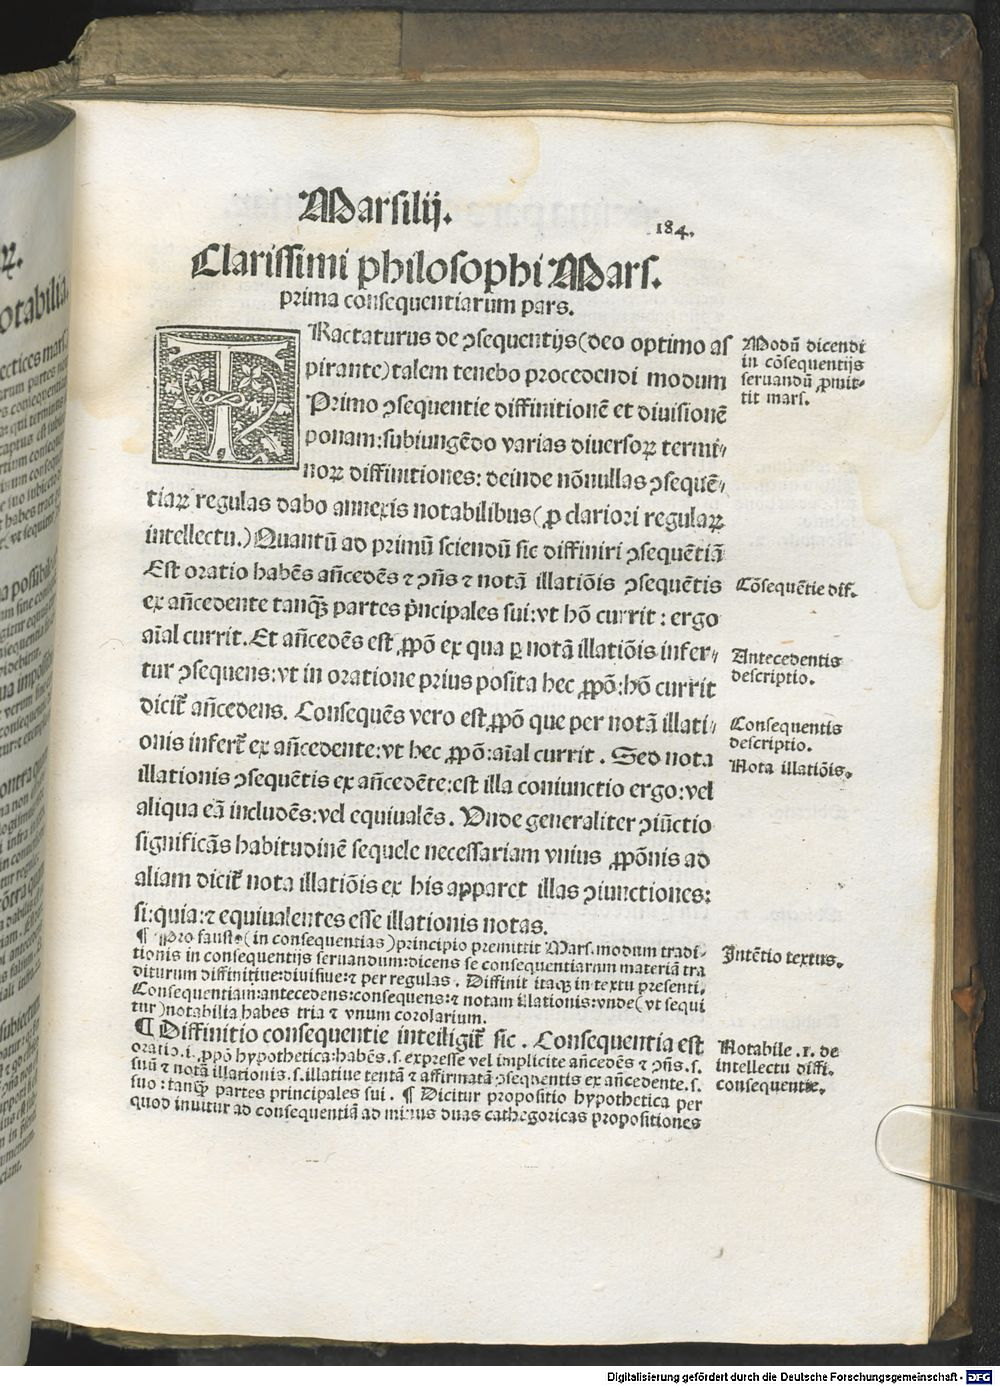 Marsilij.
184.
Clarissimi philosophi Mars.
prima consequentiarum pars.
TRactaturus de ꝯsequentijs(deo optimo as
pirante)talem tenebo procedendi modum
Primo ꝯsequentie diffinitionē et diuisionē
ponam:subiungēdo varias diuersoꝝ termi⸗
noꝝ diffinitiones: deinde nōnullas ꝯsequē⸗
tiaꝝ regulas dabo annexis notabilibus(ꝓ clariori regulaꝝ
intellectu.)Quantū ad primū sciendū sic diffiniri ꝯsequētiā
Est oratio habēs añcedēs ⁊ ꝯñs ⁊ notā illatiōis ꝯsequētis
ex añcedente tanꝙ̄ partes pⁱncipales sui:vt hō currit : ergo
aīal currit. Et añcedēs est ꝓpō ex qua ꝑ notā illatiōis infer⸗
tur ꝯsequens:vt in oratione prius posita hec ꝓpō:hō currit
dicit᷑ añcedens. Consequēs vero est ꝓpō que per notā illati⸗
onis infert᷑ ex añcedente:vt hec ꝓpō:aīal currit . Sed nota
illationis ꝯsequētis ex añcedēte:est illa coniunctio ergo:vel
aliqua eā includēs:vel equiualēs. Unde generaliter ꝯiūctio
significās habitudinē sequele necessariam vnius ꝓpōnis ad
aliam dicit᷑ nota illatiōis ex his apparet illas ꝯiunctiones:
si:quia:⁊ equiualentes esse illationis notas.
¶ Pro fausto(in consequentias)principio premittit Mars.modum tradi⸗
tionis in consequentijs seruandum:dicens se consequentiarum materiā tra
diturum diffinitiue:diuisiue:⁊ per regulas . Diffinit itaqꝫ in textu presenti.
Consequentiam:antecedens:consequens:⁊ notam illationis:vnde(vt sequi
tur)notabilia habes tria ⁊ vnum corolarium.
¶ Diffinitio consequentie intelligit᷑ sic . Consequentia est
oratio.i.ꝓpō hypothetica:habēs.s.expresse vel implicite añcedēs ⁊ ꝯñs.s.
suū ⁊ notā illationis.s.illatiue tentā ⁊ affirmatā ꝯsequentis ex añcedente.s.
suo : tanꝙ̄ partes principales sui . ¶ Dicitur propositio hypothetica per
quod innuitur ad consequentiā ad minus duas cathegoricas propositiones
Modū dicendi
in cōsequentijs
seruandū ꝓmit⸗
tit mars.
Cōsequētie dif.
Antecedentis
descriptio.
Consequentis
descriptio.
Nota illatiōis.
Intētio textus.
Notabile .1. de
intellectu diffi.
consequentie.
Digitalisierung gefördert durch die Deutsche Forschungsgemeinschaft - DFG